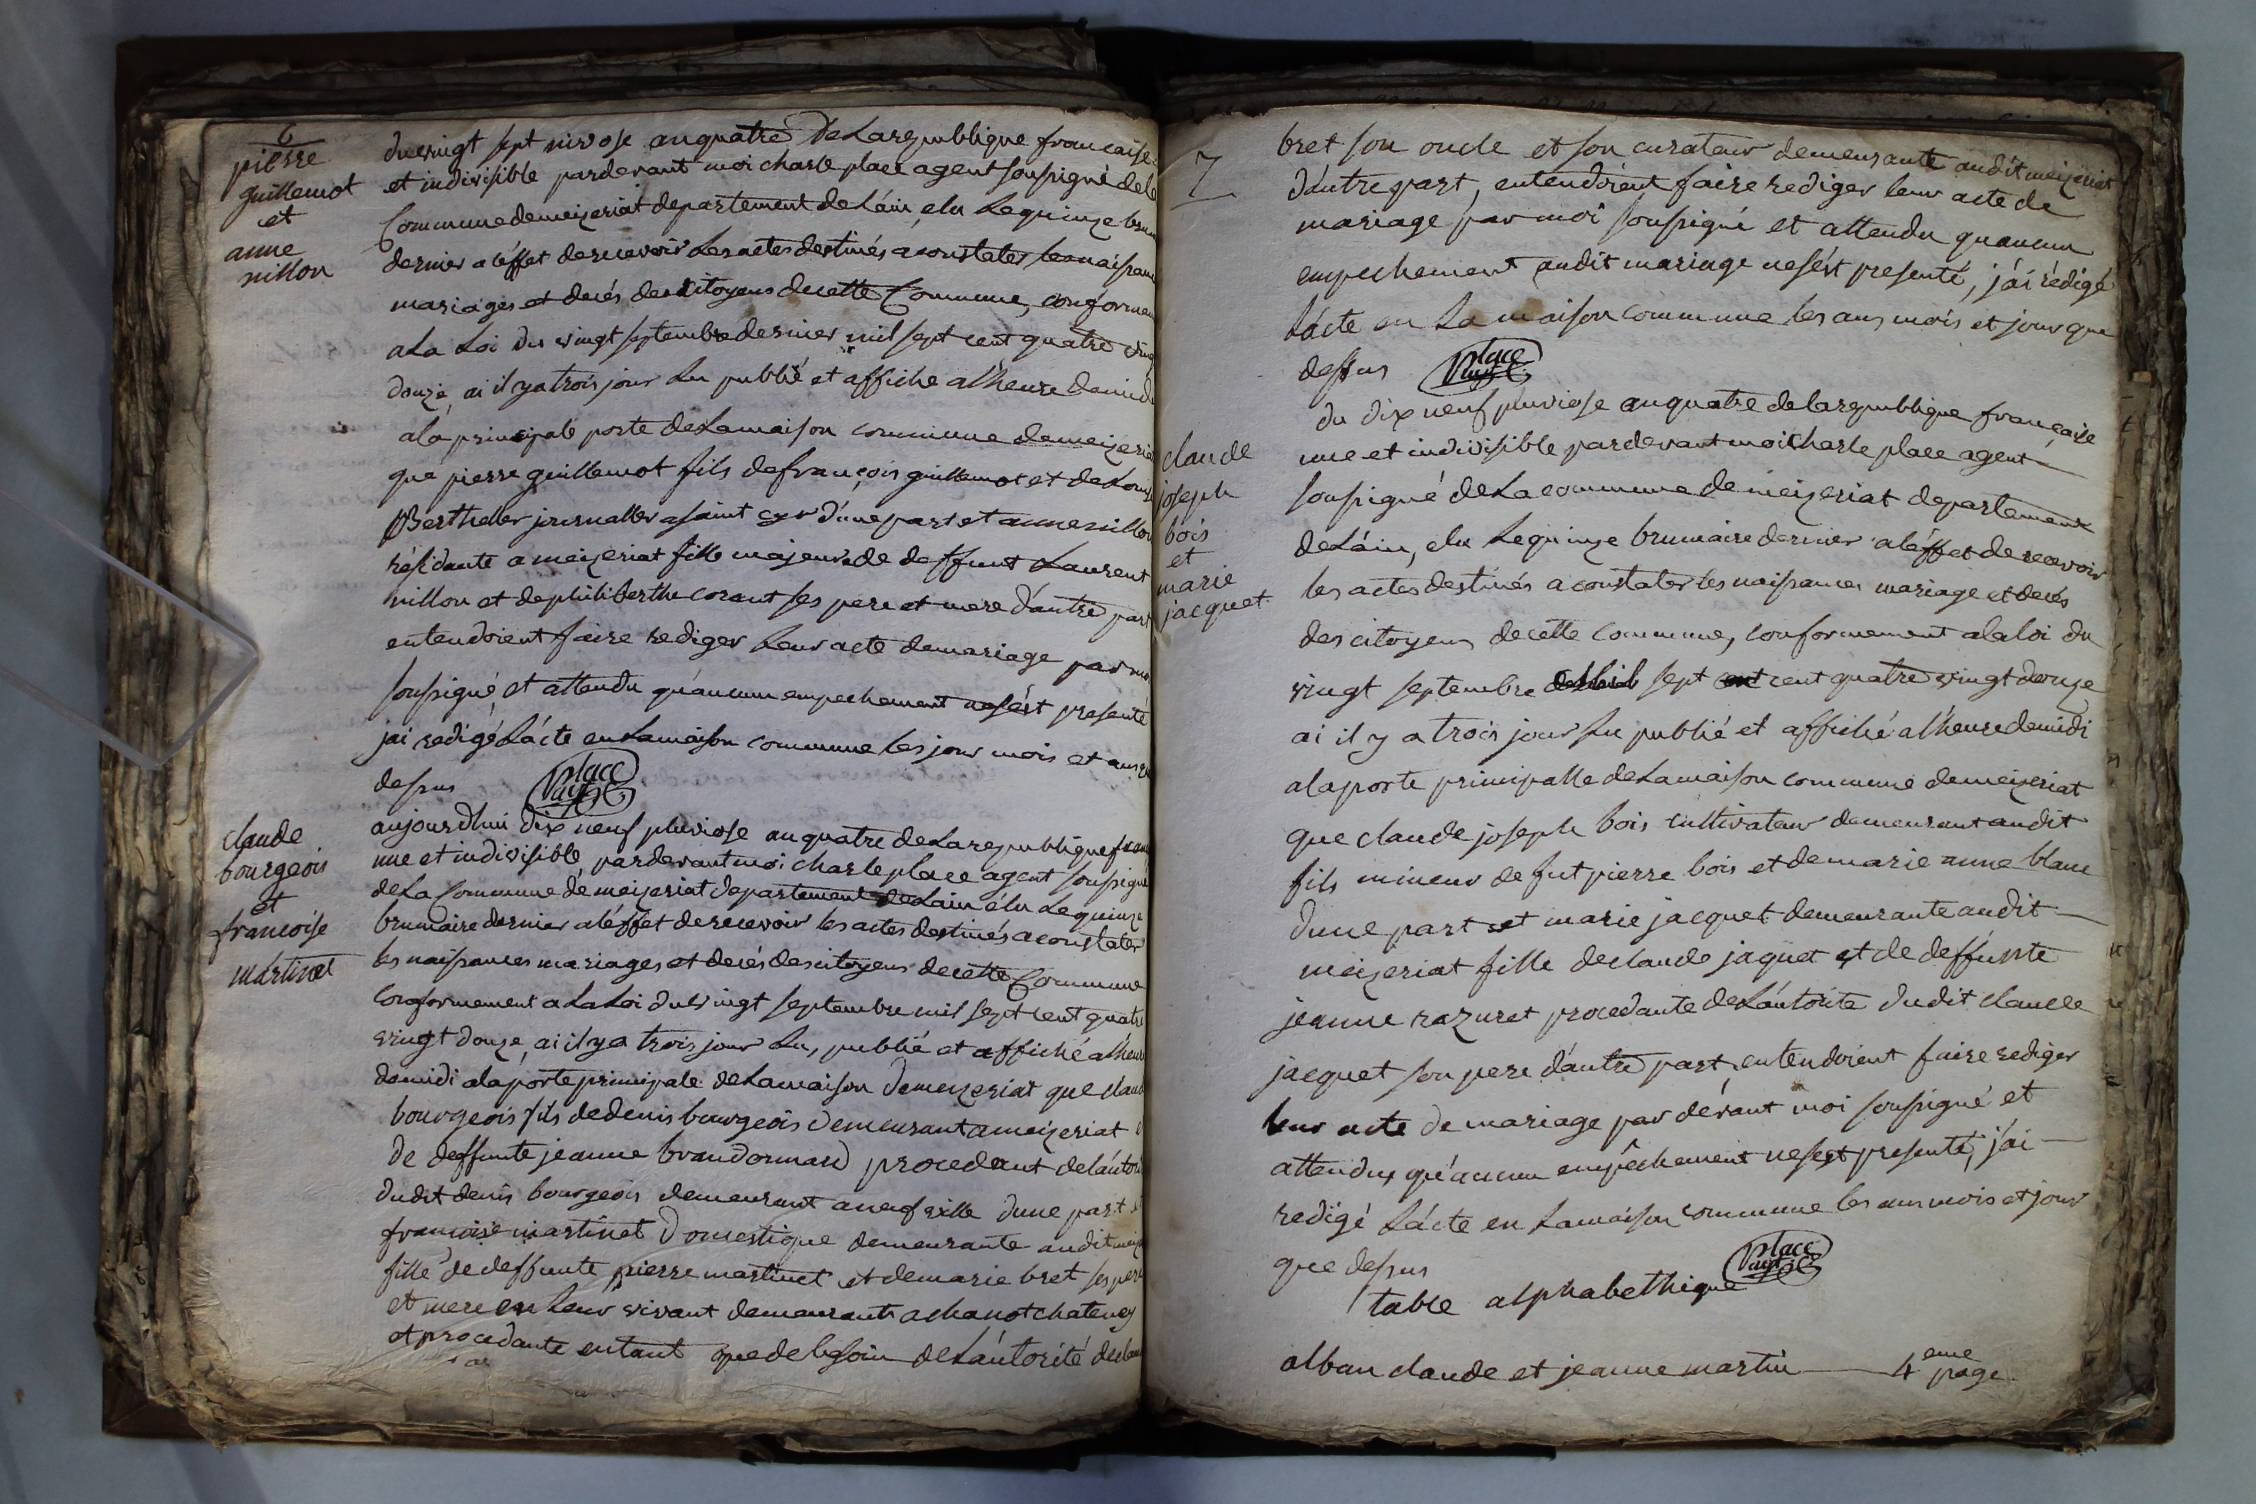 6
pierre
guillemot
et
anne
nillon
du vingt sept nivose an quatre de La republique francaise
et indivisible pardevant moi charle place agent soussigné de la
Commune de meizeriat departement de L'áin, elu Le quinze brum
dernier a l'éffet de recevoir Les actes destinés a constater les naissance
mariages et decés des citoyens de cette Commune, conformem
a La Loi du vingt septembre dernier mil sept cent quatre ving
douze, ai il y a trois jour Lu publié et affiché a l'heure de midi
a la principale porte de La maison commune de meizeria
que pierre guillemot fils de françois guillemot et de Louise
Berthelier journallier a saint cyr d'une part et anne nillon
résidante a meizeriat fille majeure de deffunt Laurent
nillon et de philiberthe corant ses pere et mere d'autre part
entendoient faire rediger Leur acte de mariage par moi
soussigné, et attendu qu'aucun empechement ne s'ést presenté
jai redigé L'ácte en La maison commune les jour mois et ans que
dessus place
claude
bourgeois
et
francoise
martinet
aujourdhui dix neuf pluviose an quatre de La republique fran
une et indivisible pardevant moi charle place agent soussigné
de La Commune de meizeriat departement de L'ain élu Le quinze
brumaire dernier a l'éffet de recevoir les actes destinés a constater
les naissances mariages et decés des citoyens de cette Commune
conformement a La Loi du vingt septembre mil sept cent quatre
vingt douze, ai il y a trois jour Lu, publié et affiché a l'heure
de midi a la porte principale de La maison de meizeriat que claude
bourgeois fils de denis bourgeois demeurant a meizeriat
de deffunte jeanne brandormard procedant de l'áutori
dudit denis bourgeois demeurant a neufville d'une part
francoise martinet domestique demeurante audit meiz
fille de deffunte pierre martinet et de marie bret ses pere
et mere en Leur vivant demeurants a chanot chatenay
et procedante en tant que de besoin de L'áutorité de clau
7
bret son oncle et son curateur demeurante audit meizeriat
d'áutre part, entendoient faire rediger leur acte de
mariage par moi soussigné et attendu quaucun
empechement audit mariage ne s'ést presenté, j'ái rédigé
L'ácte en La maison commune les ans mois et jour que
dessus place
claude
joseph
bois
et
marie
jacquet
du dix neuf pluviose an quatre de la republique française
une et indivisible pardevant moi charle place agent
soussigné de La commune de meizeriat departement
de L'áin, elu Le quinze brumaire dernier a l'éffet de recevoir
les actes destinés a constater les naissances mariage et decés
des citoyens de cette commune, conformement a la loi du
vingt septembre sept cent quatre vingt douze
ai il y a trois jour Lu publié et affiché a l'heure de midi
a la porte principalle de La maison commune de meizeriat
que claude joseph bois cultivateur demeurant audit
fils mineur de fut pierre bois et de marie anne blanc
d'une part et marie jacquet demeurante audit
meizeriat fille de claude jaquet et de deffunte
jeanne razuret procedante de L'áutorite dudit claude
jacquet son pere d'áutre part entendoient faire rediger
leur acte de mariage par dévant moi soussigné et
attendu qu'áucun empêchement ne sest presenté, j'ái
redigé L'ácte en La maison commune les ans mois et jour
que dessus place
table alphabethique
alban claude et jeanne martin 4eme page